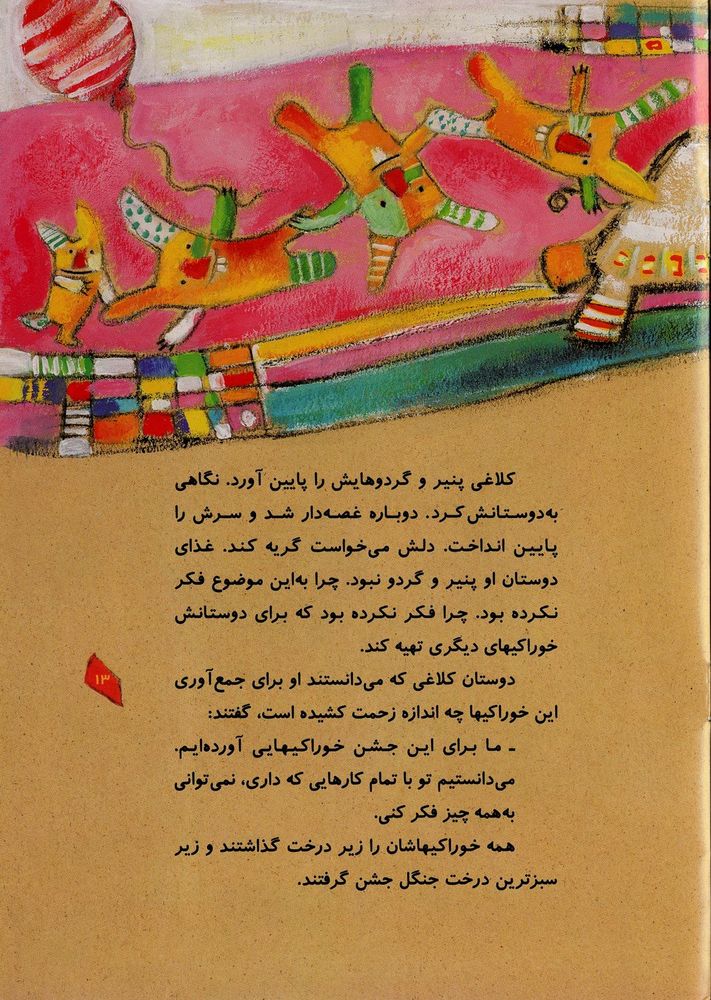 کلاغی پنیر و گردوهایش را پایین آورد. نگاهی
به‌دوستانش کرد. دوباره غصه‌دار شد و سرش را
پایین انداخت. دلش می‌خواست گریه کند. غذای
دوستان او پنیر و گردو نبود. چرا به‌این موضوع فکر
نکرده بود. چرا فکر نکرده بود که برای دوستانش
خوراکیهای دیگری تهیه کند.
دوستان کلاغی که می‌دانستند او برای جمع‌آوری
این خوراکیها چه اندازه زحمت کشیده است، گفتند:
ـ ما برای این جشن خوراکیهایی آورده‌ایم.
می‌دانستیم تو با تمام کارهایی که داری، نمی‌توانی
به‌همه چیز فکر کنی.
همه خوراکیهاشان را زیر درخت گذاشتند و زیر
سبزترین درخت جنگل جشن گرفتند.
۱۳